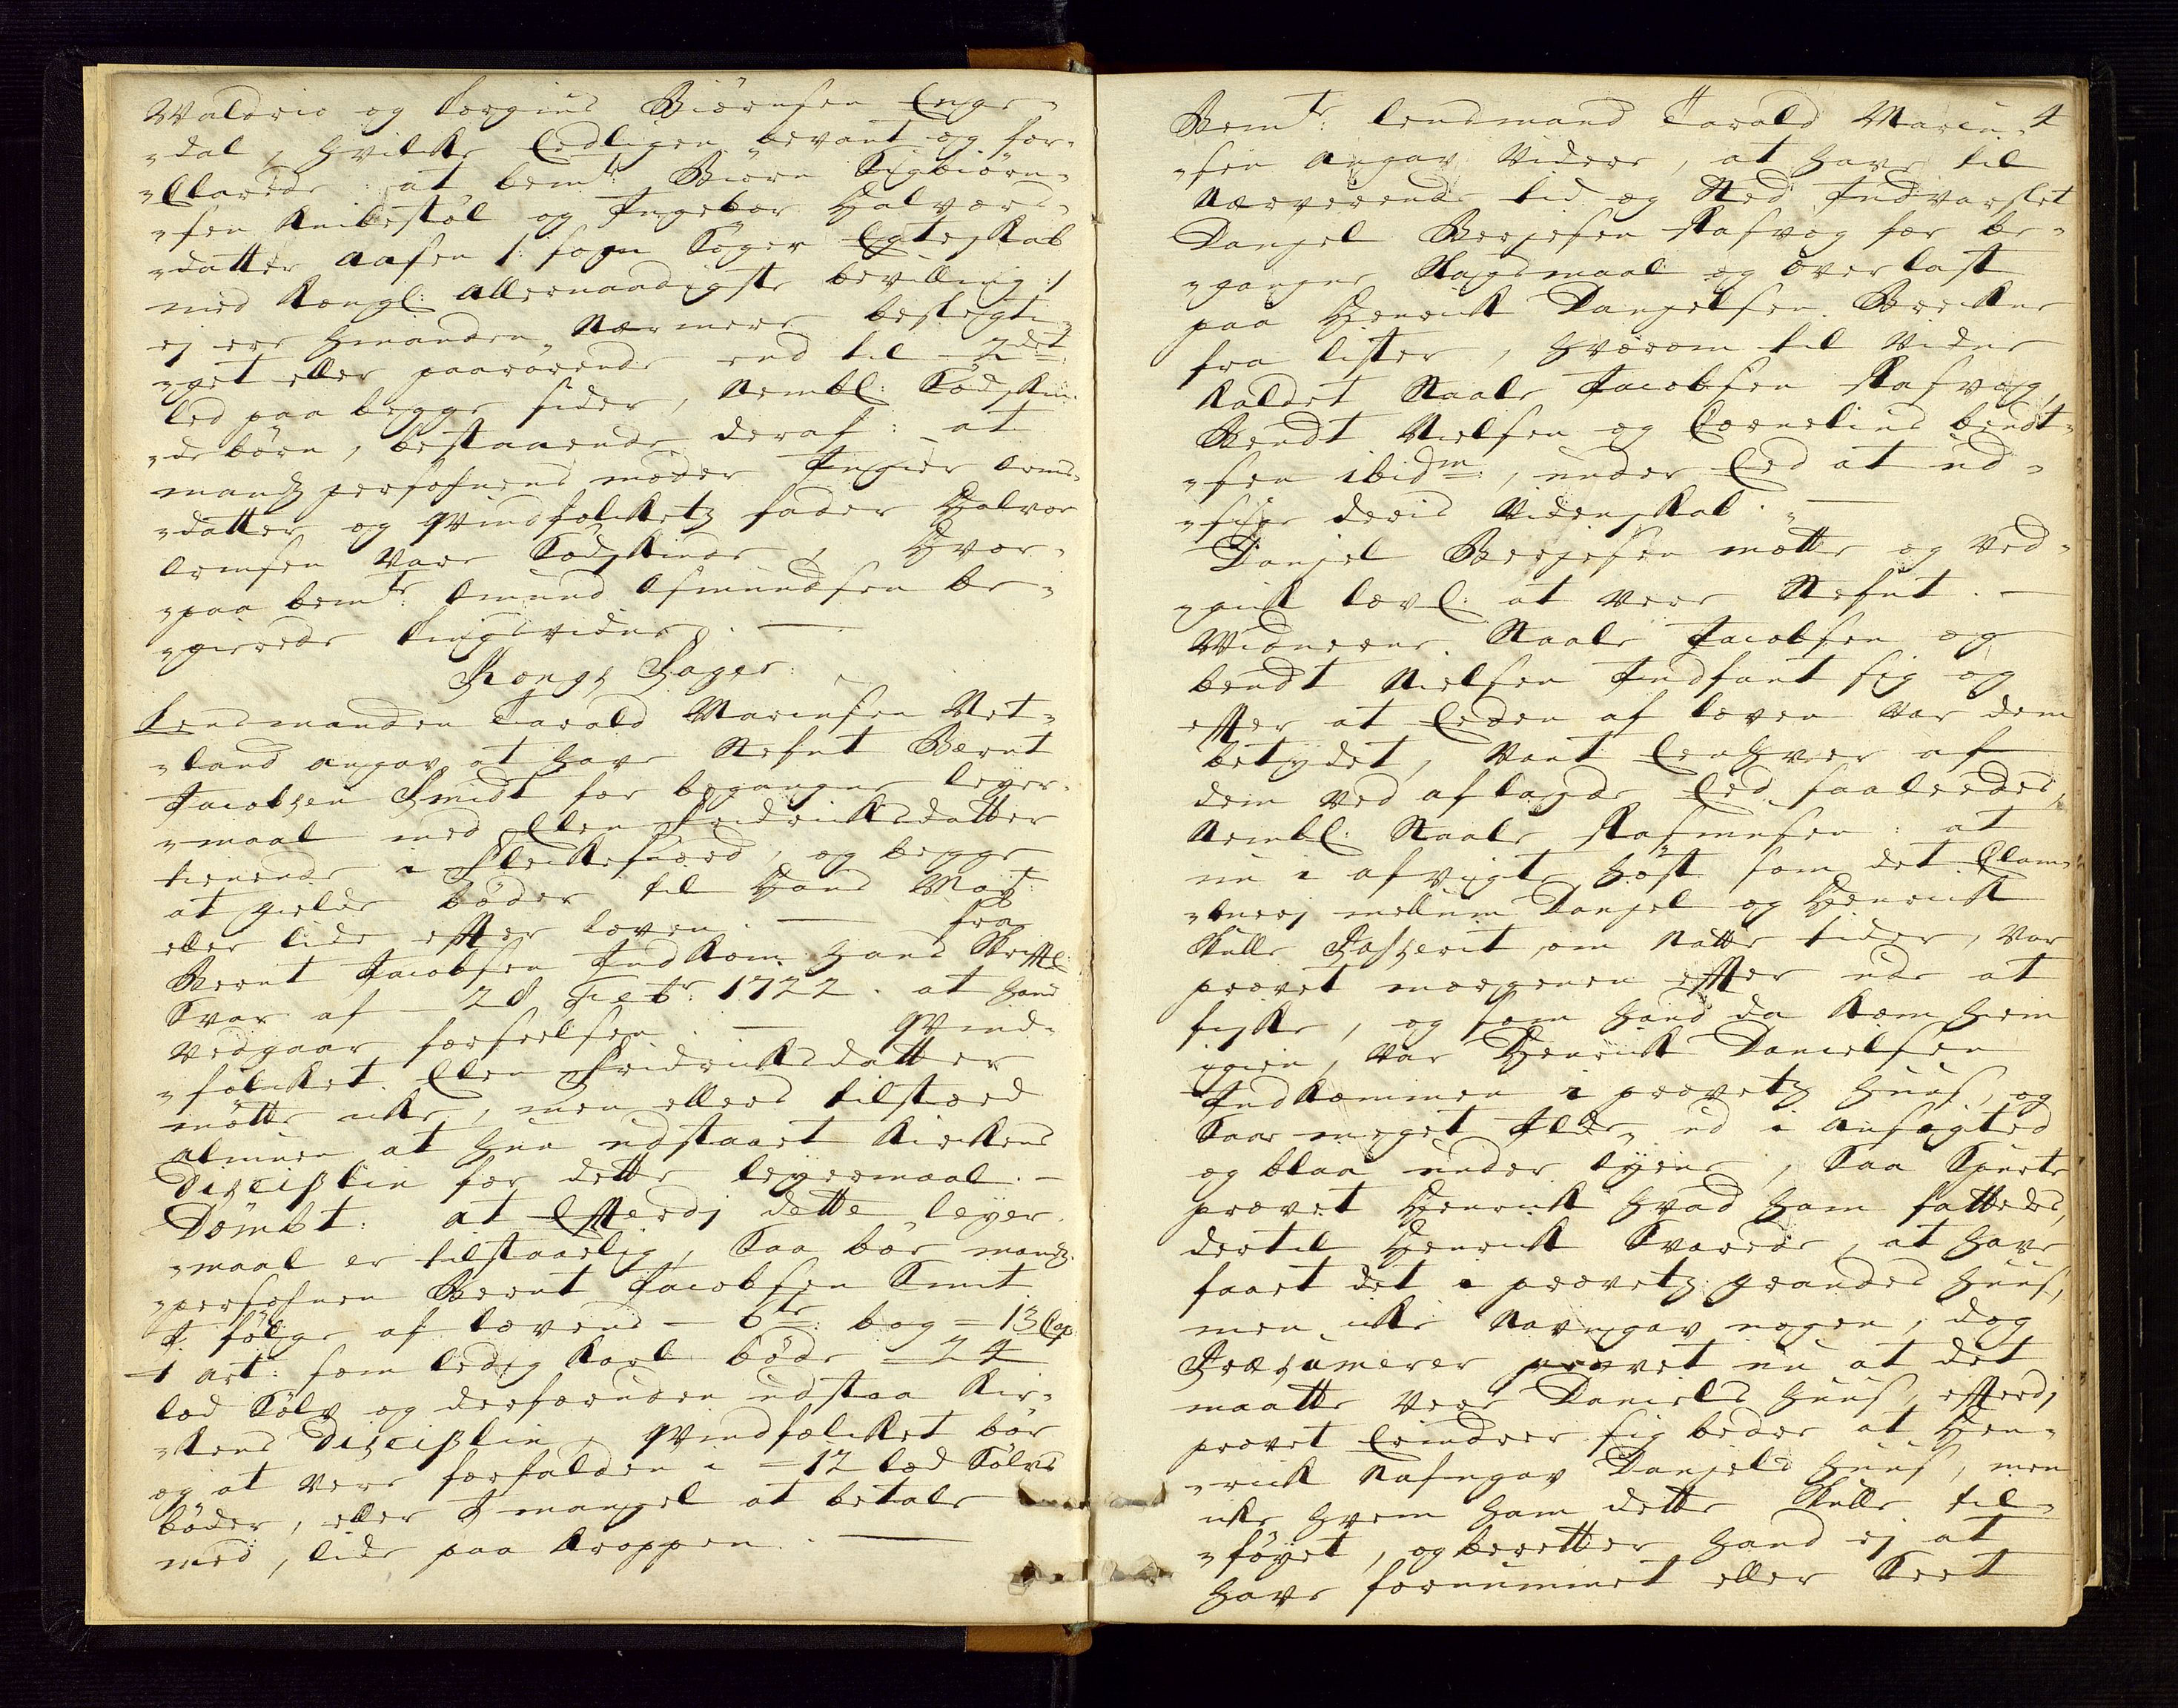 Waldrio og Torgius Biørnsen Enge-
„dal, hvilke Eedligen bevant og for-
„Clarede: at bem.te Biørn Sigbiørn-
„sen Knibestøl og Ingebor Halvors-
„datter Aasen /: som søger Egteskab
med Kongl: allernaadigste bevilling :/
ej ere hinanden Nærmere beslegti-
„get eller paarørende end til 2det
led paa begge sider, Nembl: Sødskin-
„de børn, bestaaende deraf: at
mands persohnens moder Inger Orms-
„datter og qvindfolketz fader Halvor
Ormsen vare Sødskinde, Hvor-
„paa bem.te Omund Asmundsen be-
„gierede tingsvidne. —
Kongs Sager:
Lensmanden Tarald Marcusen Net-
„land angav at have Stefnt Bernt
Jacobsen Smidt for begangne leyer-
„maal med Ellen Fridricksdatter
tienende i Fleckefiord, og begge
at gielde bøder til Hans May.t
eller lide effter loven. — fra
Bernt Jacobsen Indkom hans Skrifftl:
Svar af — 28 Febr: 1722. at hand
Vedgaar forseelsen. — qvind-
„folcket Ellen Fridricksdatter
møtte icke, men ellers tilstoed
almuen at hun udstaaet Kirckens
Disciplin for dette leyermaal. —
Dømbt: at Efftersom dette leyer-
„maal er tilstaaelig, saa bør mands
„persohnen Bernt Jacobsen Smit
I følge af lovens — 6te bog — 13 Cap:
1 art: som ledig Karl bøde — 24
lod Sølv og desforuden udstaa Kir-
„kens Disciplin, qvindfolcket bør
og at vere forfalden i — 12 lod Sølvs
bøder, eller I mangel at betale
med, lide paa Kroppen. —

4
Bem.te lensmand Tarald Marcu-
„sen angav videre, at have til
Nærverende tid og Sted Indvarslet
Danjel Berjesen Rasvog for be-
„gangne Slagsmaal og overlast
paa Henrick Danjelsen Breckne
fra lister, hvorom til vidne
Kaldet Staale Jacobsen Rasvog,
Bendt Nielsen og Cornelius bendt-
„sen ibid.m, under Eed at ud-
„sige deris Videnskab. —
Danjel Berjesen møtte og ved-
„gick lovl: at vere Stefnt. —
Vidnerne Staale Jacobsen og
bendt Nielsen Indfant sig og
effter at Eeden af loven var dem
betydet, vant Eenhver af
dem ved aflagde Eed saaledes,
Nembl: Staale Rasmusen: at
nu i afvigte høst som det Clam-
„merj mellum Danjel og Henrick
Skulle Passerit, om natte tider, var
provet morgenen effter ude at
fiske, og som hand da kom hiem
igien, var Henrick Danielsen
Indkommen i provetz huus, og
Saae meget Ilde ud i ansigted
og blaa under øyene, Saa Spurte
provet Henrick hvad ham fattedes,
dertil Henrick Svarede, at have
faaet det i provetz grandes huus,
men icke Navngav nogen, dog
Præsumerer provet nu at det
maatte vere Daniels huus, effterdj
provet Erindrer sig beder at Hen-
„rick Nafngav Danjels huus, men
icke hvem ham dette Skulle til-
„føyet, og beretter hand ej at
have fornummet eller Seet